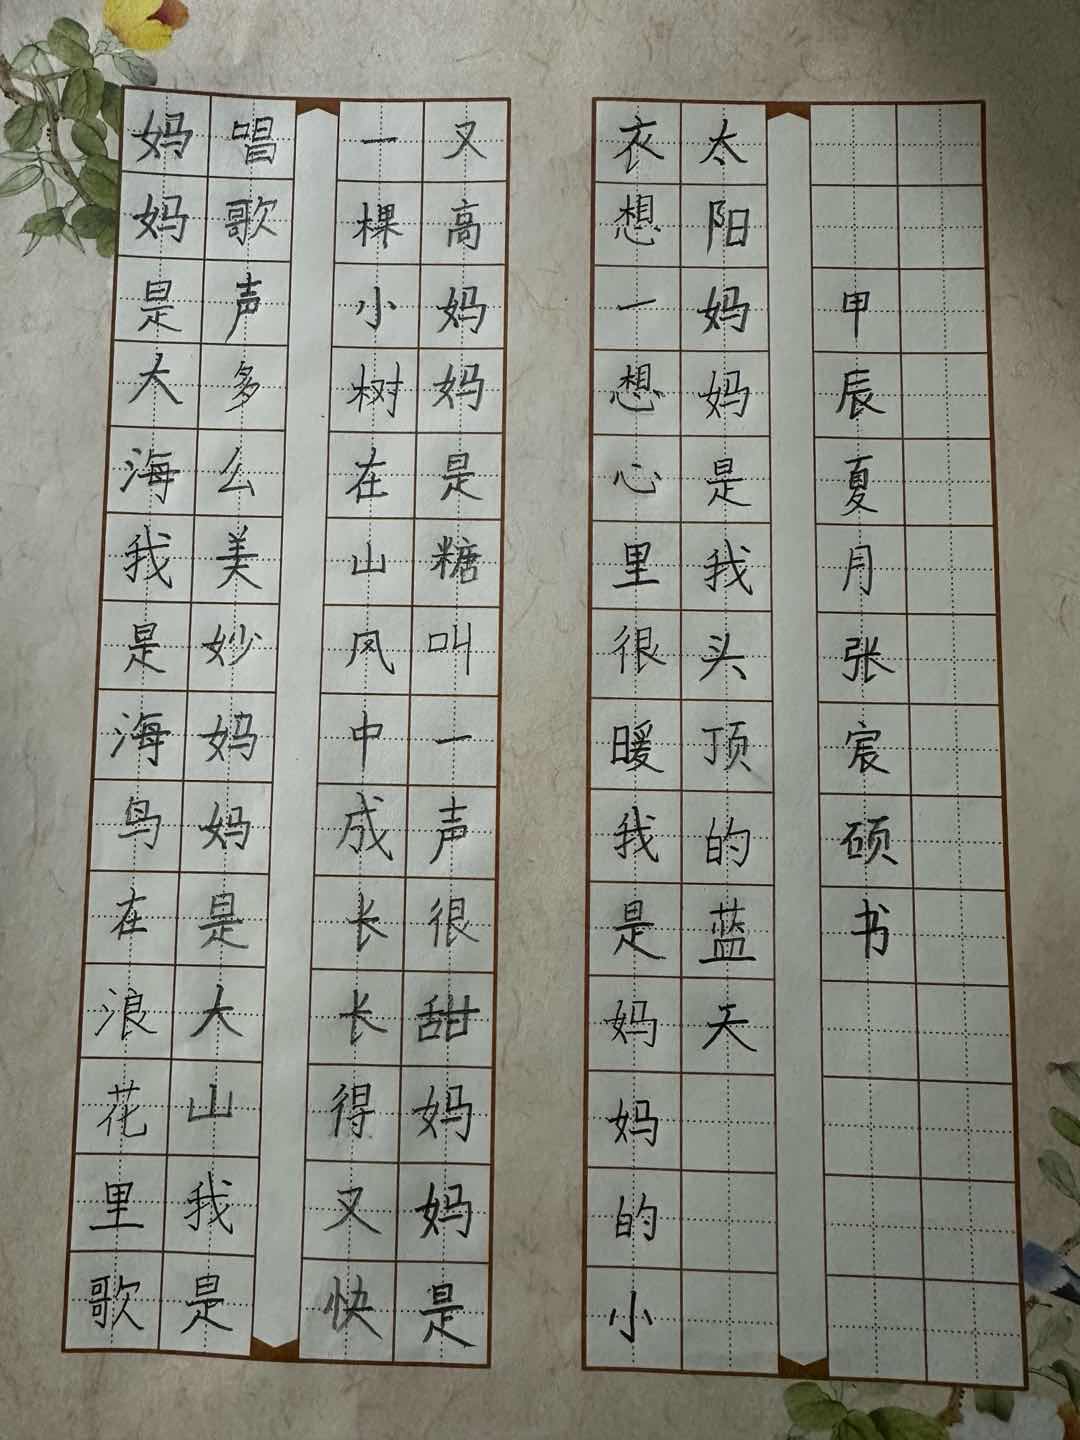 妈妈是大海我是海鸟在浪花里歌
唱歌声多么美妙妈妈是大山我是
一棵小树在山风中成长长得又快
又高妈妈是糖叫一声很甜妈妈是
衣想一想心里很暖我是妈妈的小
太阳妈妈是我头顶的蓝天
甲辰夏月张宸硕书